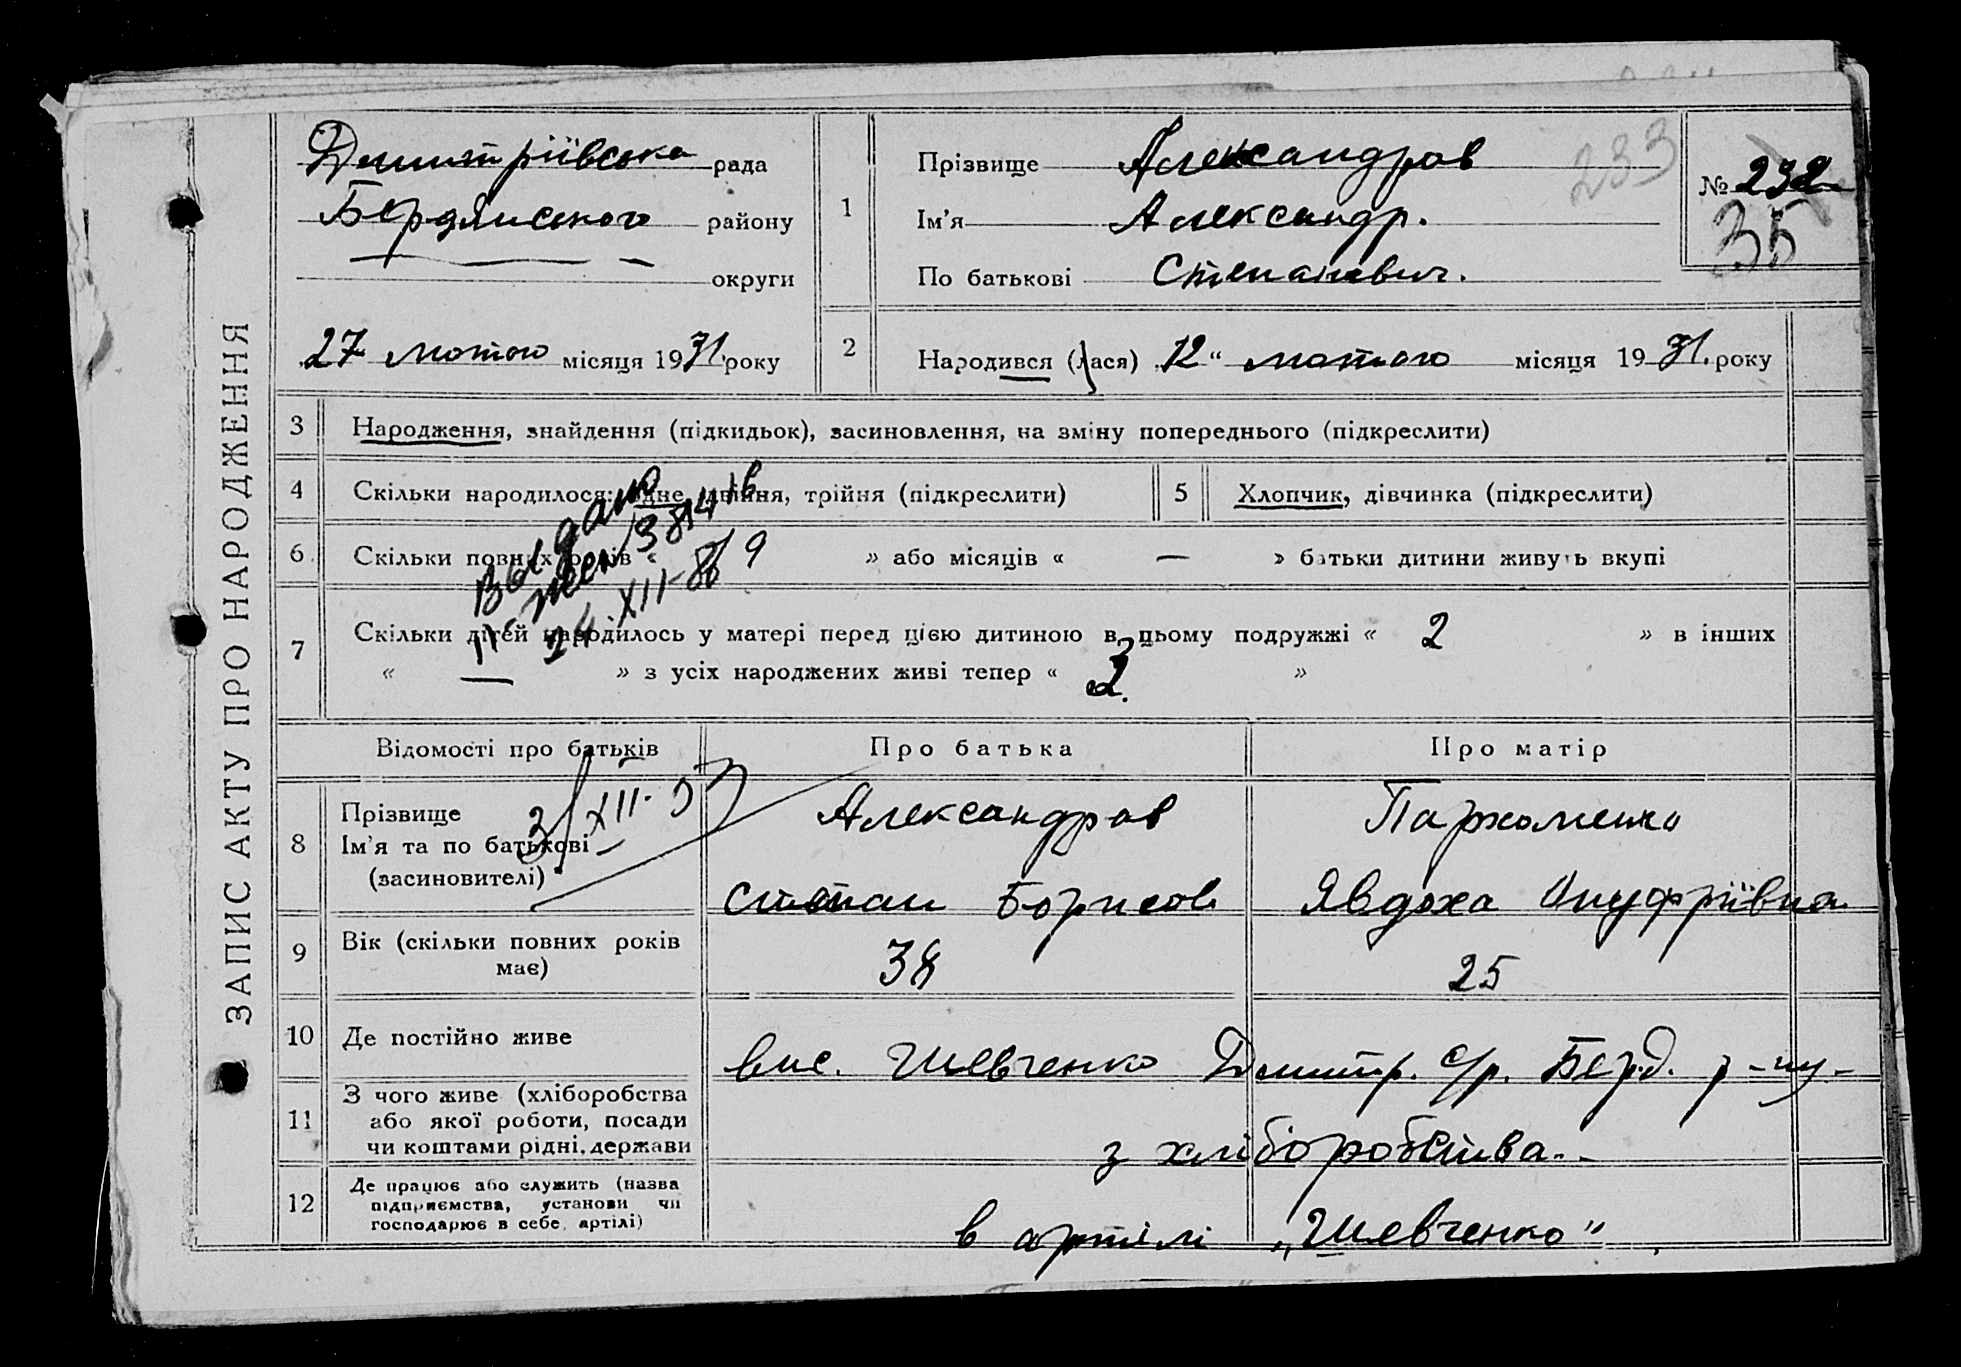 ЗАПИС АКТУ ПРО НАРОДЖЕННЯ
Дмитріївська рада
Бердянського району
округи
27 лютого місяця 1931 року
1
Прізвище Александров
Ім'я Александр.
По батькові Степанович.
233
№ 232
35
2
Народився (лася) „12“ лютого місяця 1931. року
3 Народження, знайдення (підкидьок), засиновлення, на зміну попереднього (підкреслити)
4 Скільки народилося: одне, двійня, трійня (підкреслити)
5 Хлопчик, дівчинка (підкреслити)
6 Скільки повних років « 9 » або місяців « — » батьки дитини живуть вкупі
7 Скільки дітей народилось у матері перед цією дитиною в цьому подружжі « 2 » в інших
« — » з усіх народжених живі тепер « 2. »
Выдано
24-XII-
3/XII-
Відомості про батьків Про батька Про матір
8 Прізвище
Ім'я та по батькові
(засиновителі)
Александров
Степан Борисов.
Пархоменко
Явдоха Онуфріївна
9 Вік (скільки повних років має) 38 25
10 Де постійно живе
вис. Шевченко Дмитр. с/р. Берд. р-ну-
11 З чого живе (хліборобства
або якої роботи, посади
чи коштами рідні, держави
з хліборобства.-
12 Де працює або служить (назва
підприємства, установи чи
господарює в себе, артілі)
в артілі „Шевченко"